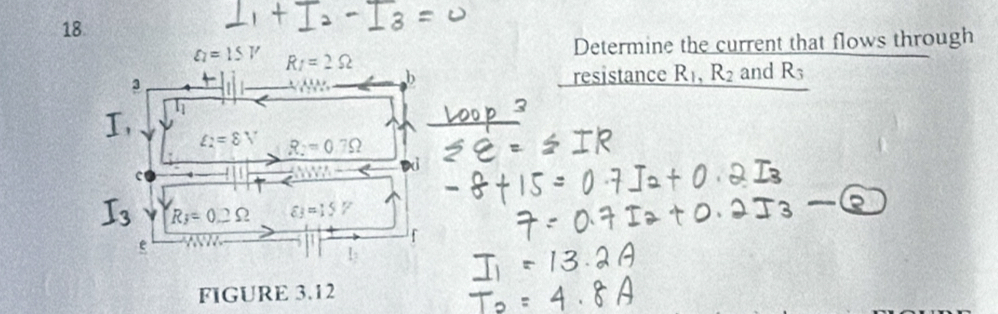 I1 + I2 - I3 = 0
18.
Determine the current that flows through
resistance R1, R2 and R3
ε1 = 15 V
R1 = 2 Ω
a
b
I1
ε2 = 8 V
R2 = 0.7Ω
c
d
I3
R3 = 0.2 Ω
ε3 = 15 V
e
f
FIGURE 3.12
Loop 2
Σε = Σ IR
-8+15 = 0.7I2 + 0.2I3
7 = 0.7I2 + 0.2I3 — ②
I1 = 13.2A
I2 = 4.8A